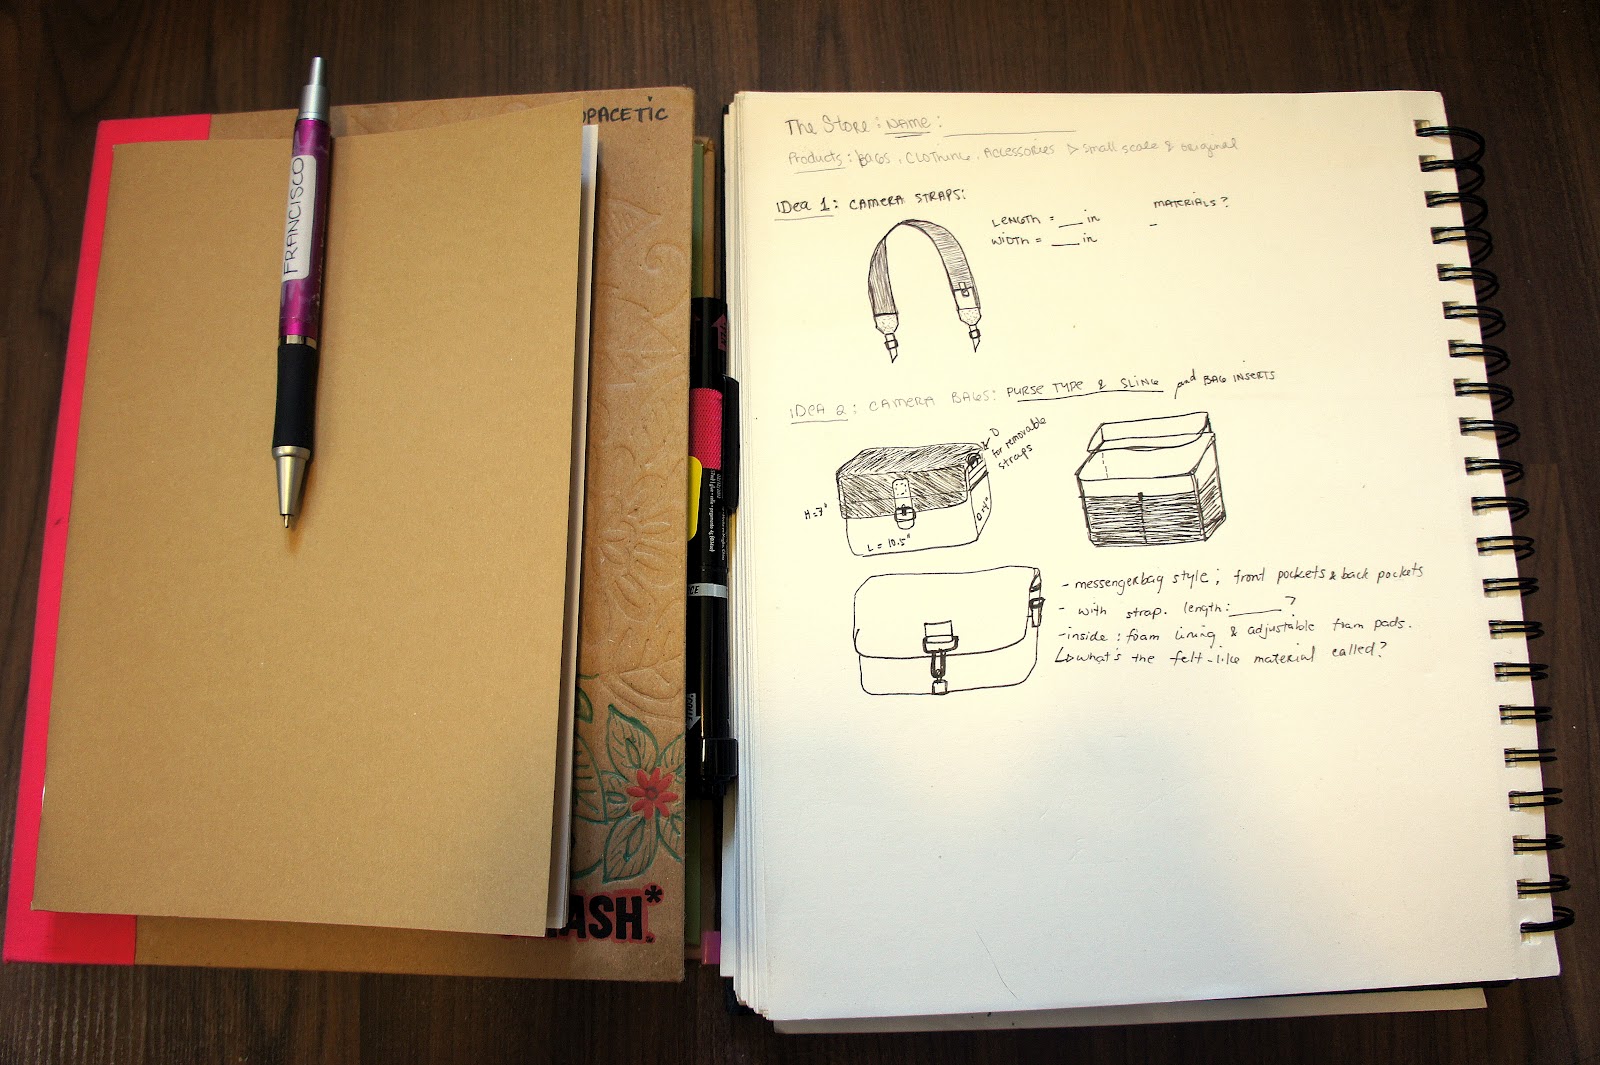 OPACETIC
FRANCISCO
ASH*
The Store: NAME:
Products: BAGS, CLOTHING, ACCESSORIES ▷ small scale & original
IDea 1: CAMERA STRAPS:
LENGTH = ___ in
WIDTH = ___ in
MATERIALS?
-
IDea 2: CAMERA BAGS: PURSE TYPE & SLING and BAG INSERTS
D
for removable
straps
H = 7"
L = 10.5"
D=4"
- messengerbag style; front pockets & back pockets
- with strap. length: ____?
- inside: foam lining & adjustable foam pads.
↳ what's the felt-like material called?